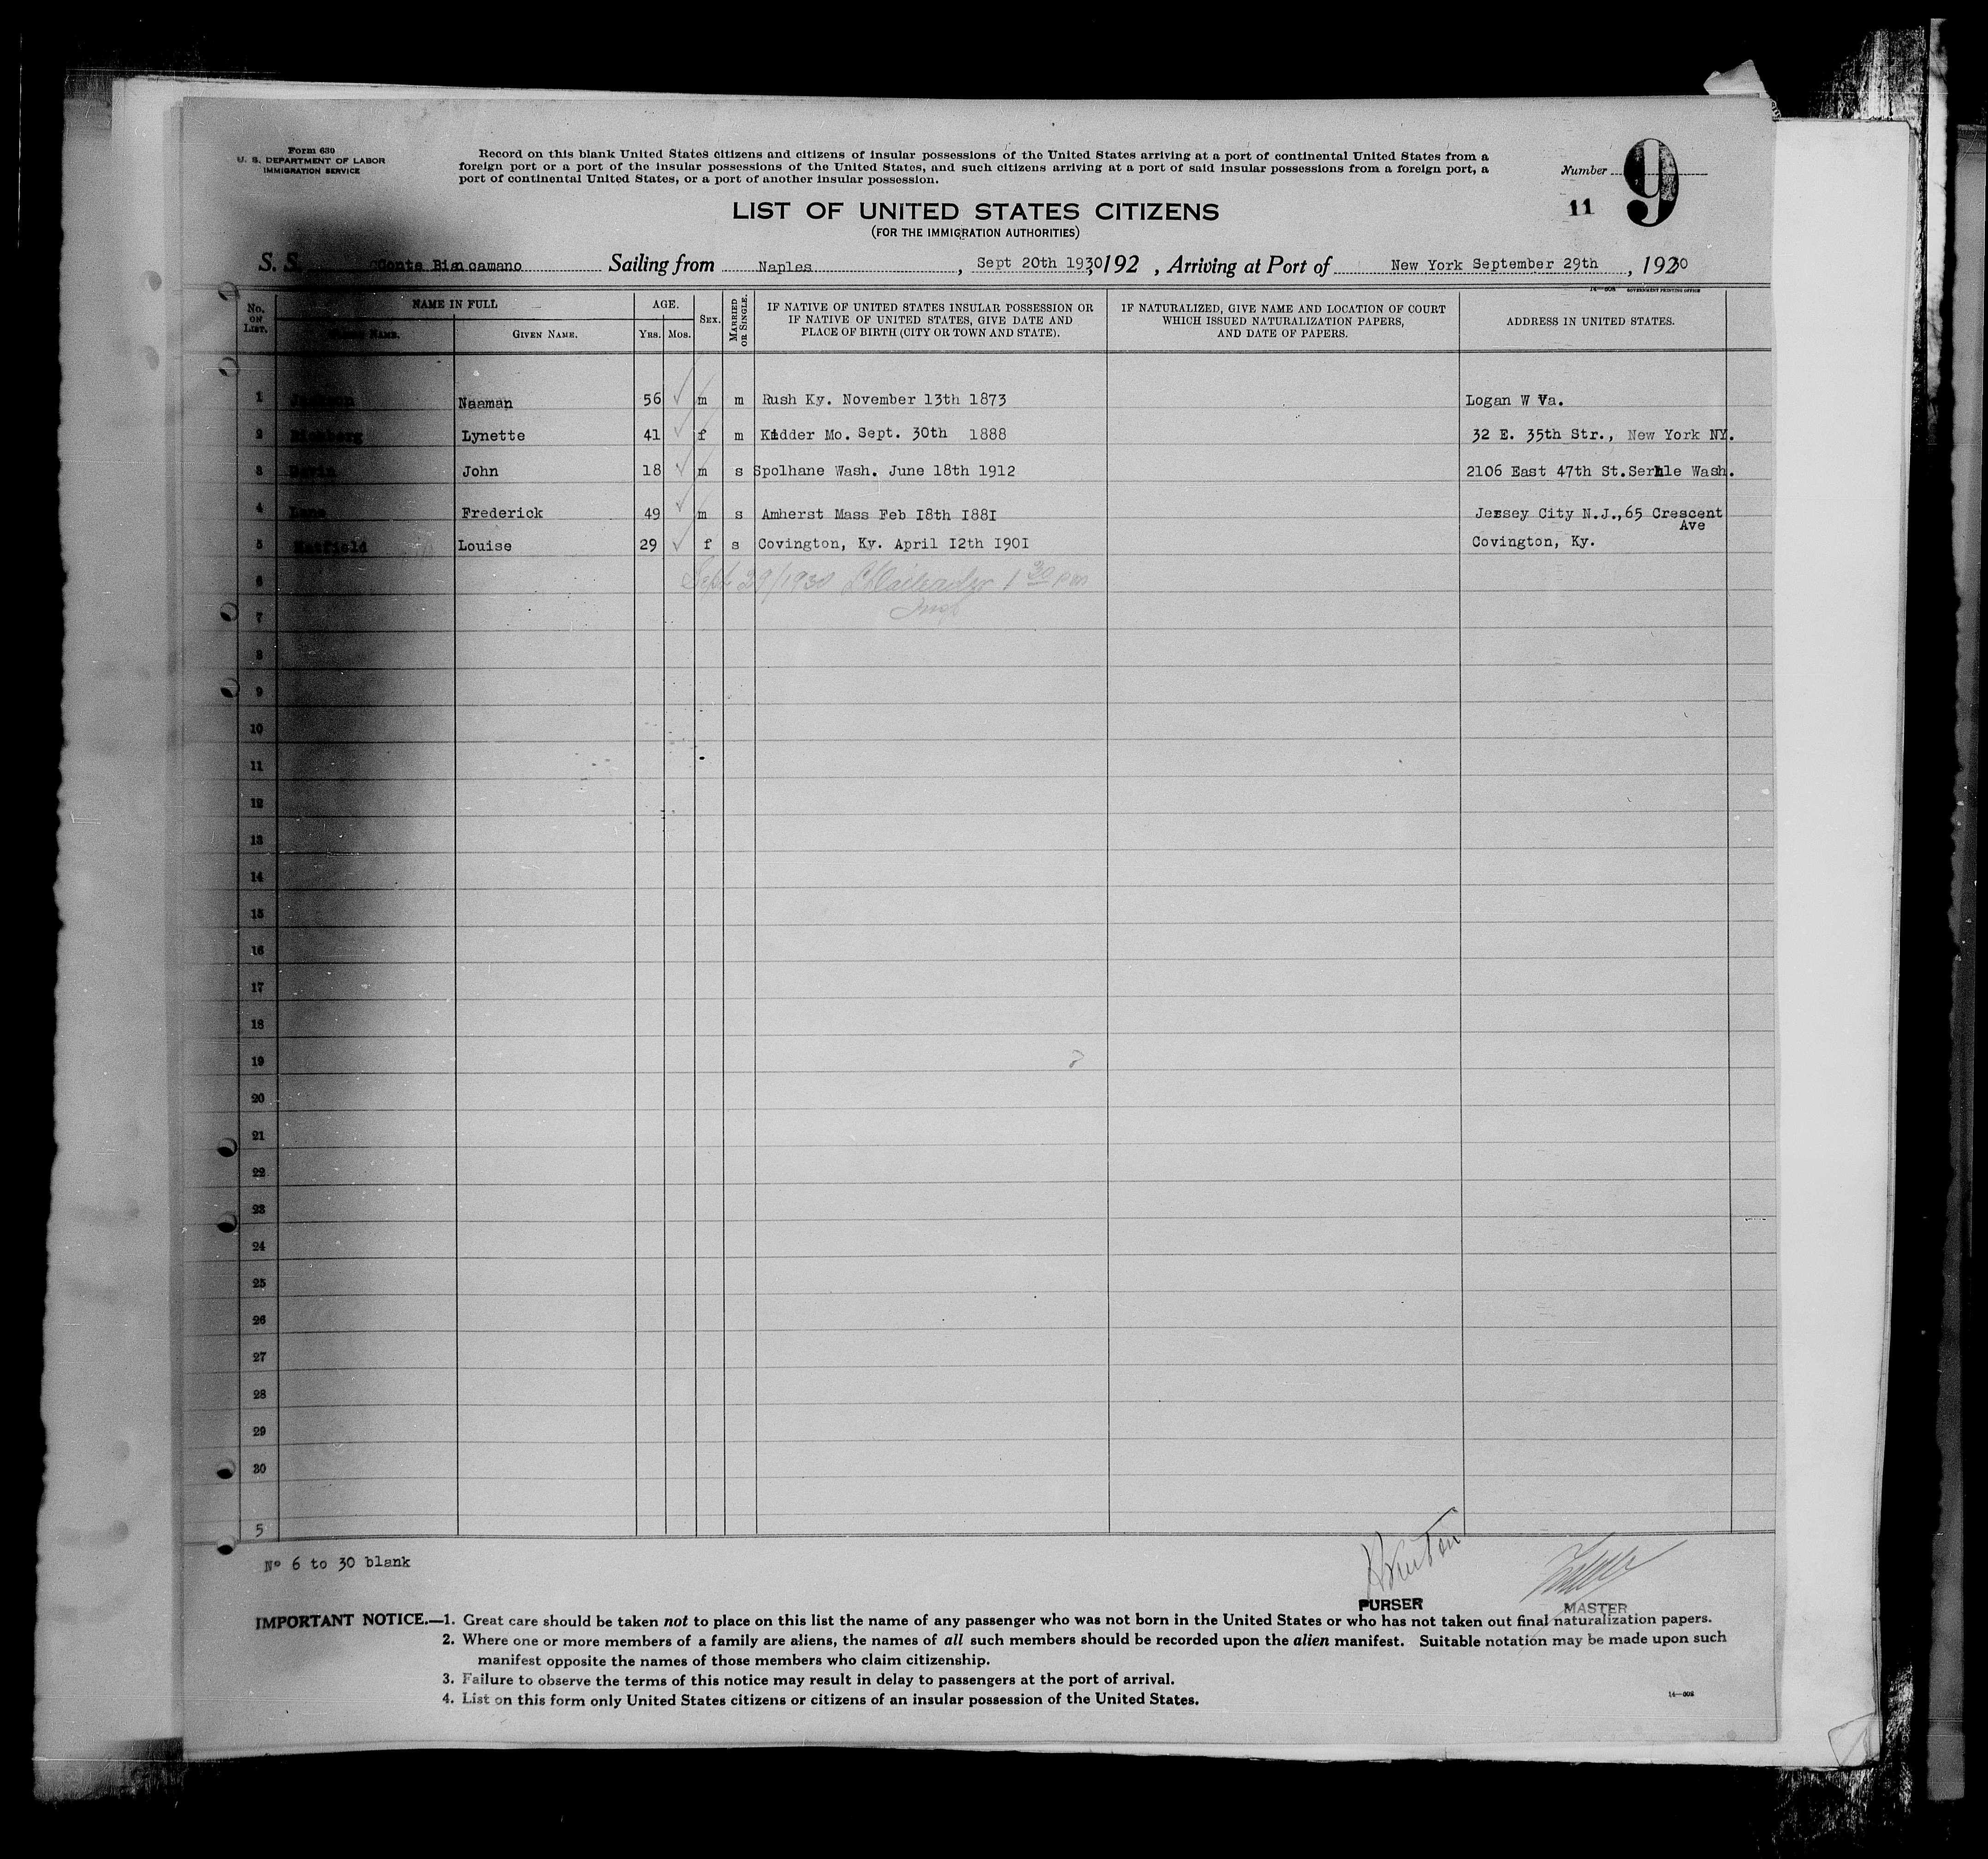 Form 630
U. S. DEPARTMENT OF LABOR
IMMIGRATION SERVICE
Record on this blank United States citizens and citizens of insular possessions of the United States arriving at a port of continental United States from a
foreign port or a port of the insular possessions of the United States, and such citizens arriving at a port of said insular possessions from a foreign port, a
port of continental United States, or a port of another insular possession.
Number 9
11
LIST OF UNITED STATES CITIZENS
(FOR THE IMMIGRATION AUTHORITIES)
S. S. Conte Biancamano Sailing from Naples, Sept 20th 1930, 192 , Arriving at Port of New York September 29th, 1930
14—808 GOVERNMENT PRINTING OFFICE
No. ON LIST. NAME IN FULL AGE. SEX. MARRIED OR SINGLE. IF NATIVE OF UNITED STATES INSULAR POSSESSION OR IF NATIVE OF UNITED STATES, GIVE DATE AND PLACE OF BIRTH (CITY OR TOWN AND STATE). IF NATURALIZED, GIVE NAME AND LOCATION OF COURT WHICH ISSUED NATURALIZATION PAPERS, AND DATE OF PAPERS. ADDRESS IN UNITED STATES.
FAMILY NAME. GIVEN NAME. YRS. MOS.
1 Jackson Naaman 56 m m Rush Ky. November 13th 1873 Logan W Va.
2 Lynette 41 f m Kidder Mo. Sept. 30th 1888 32 E. 35th Str., New York NY.
3 John 18 m s Spolhane Wash. June 18th 1912 2106 East 47th St. Wash.
4 Lane Frederick 49 m s Amherst Mass Feb I8th I88I Jersey City N.J.,65 Crescent
Ave
5 Hatfield Louise 29 f s Covington, Ky. April I2th I90I Covington, Ky.
6 Sept 29/1930 1 30 pm
Insp
7
8
9
10
11
12
13
14
15
16
17
18
19
20
21
22
23
24
25
26
27
28
29
30
5
Nº 6 to 30 blank
PURSER
MASTER
IMPORTANT NOTICE.—1. Great care should be taken not to place on this list the name of any passenger who was not born in the United States or who has not taken out final naturalization papers.
2. Where one or more members of a family are aliens, the names of all such members should be recorded upon the alien manifest. Suitable notation may be made upon such
manifest opposite the names of those members who claim citizenship.
3. Failure to observe the terms of this notice may result in delay to passengers at the port of arrival.
4. List on this form only United States citizens or citizens of an insular possession of the United States.
14—808